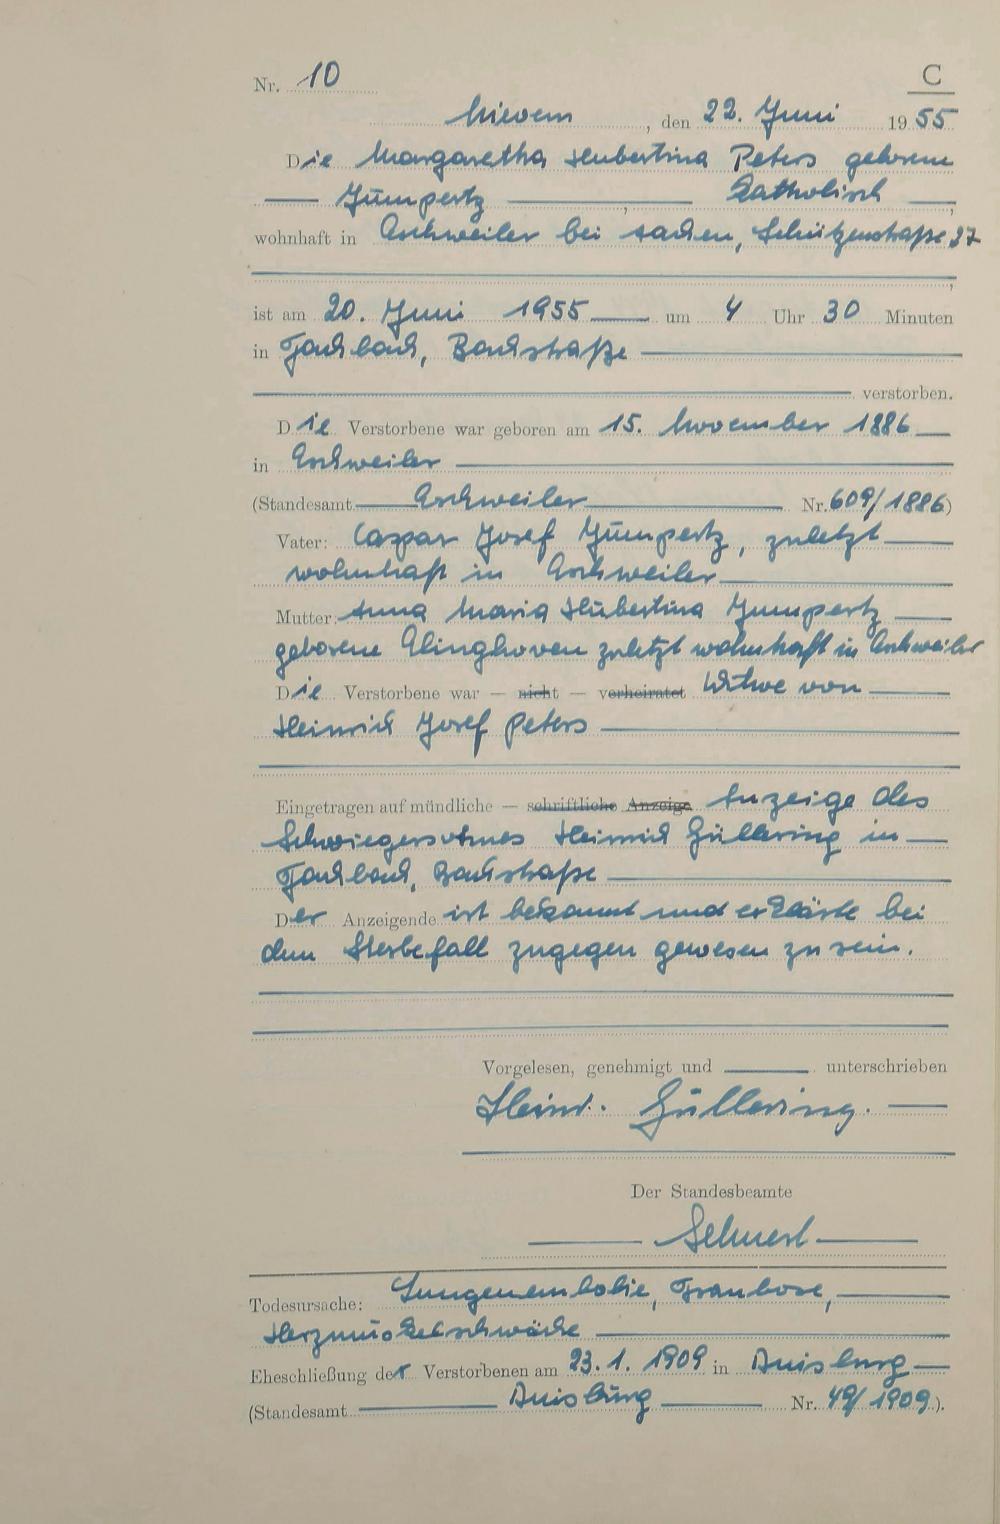 Nr. 10
C
Mievem, den 22. Juni 1955
Die Margaretha Hubertina Peters geborene
Jümpertz, Katholisch,
wohnhaft in Eschweiler bei Aachen, Schützenstraße 37
ist am 20. Juni 1955 um 4 Uhr 30 Minuten
in Fachbach, Bachstraße
verstorben.
Die Verstorbene war geboren am 15. November 1886
in Eschweiler
(Standesamt Eschweiler Nr. 609/1886)
Vater: Caspar Josef Jümpertz, zuletzt
wohnhaft in Eschweiler
Mutter: Anna Maria Hubertina Jumpertz
geborene Elinghoven zuletzt wohnhaft in Eschweiler
Die Verstorbene war — nicht — verheiratet Witwe von
Heinrich Josef Peters
Eingetragen auf mündliche — schriftliche Anzeige Anzeige des
Schwiegersohnes Heinrich Güllering in
Fachbach, Bachstraße
Der Anzeigende ist bekannt und erklärte bei
dem Sterbefall zugegen gewesen zu sein.
Vorgelesen, genehmigt und unterschrieben
Heinr. Güllering.
Der Standesbeamte
Todesursache: Lungenembolie, Trombose,
Herzmuskelschwäche
Eheschließung der Verstorbenen am 23.1.1909 in Duisburg
(Standesamt Duisburg Nr. 49/1909).